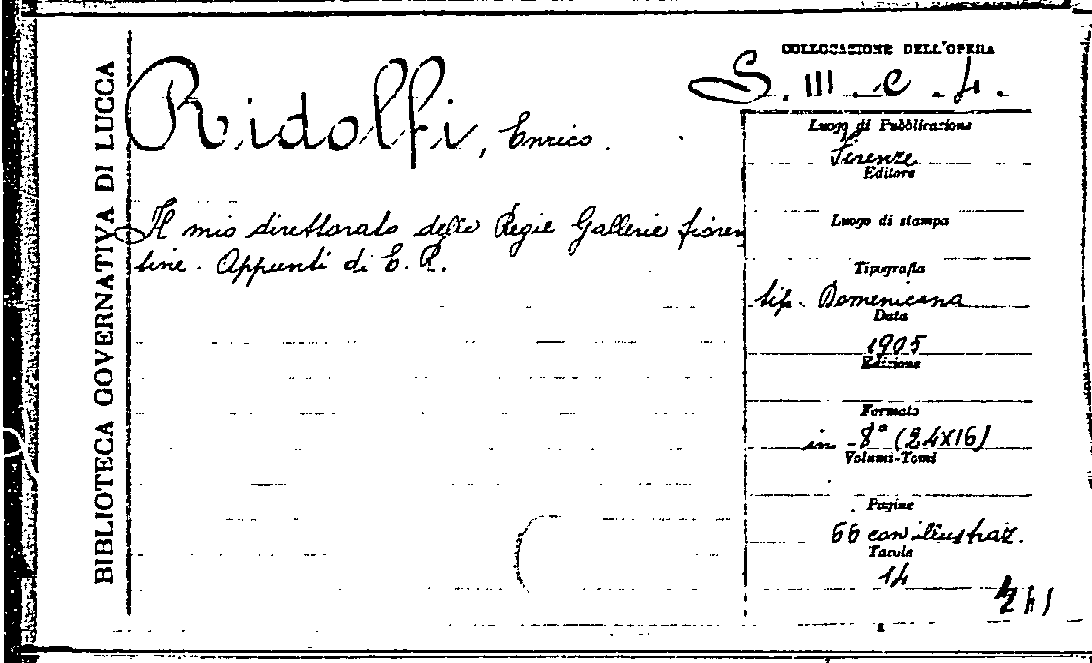 BIBLIOTECA GOVERNATIVA DI LUCCA
Ridolfi, Enrico.
Il mio direttorato delle Regie Gallerie fioren
tine. Appunti di E. R.
COLLOCAZIONE DELL'OPERA
S. III. C. 4.
Luogo di Pubblicazione
Firenze
Editore
Luogo di stampa
Tipografia
tip. Domenicana
Data
1905
Edizione
Formato
in 8° (24X16)
Volumi-Tomi
Pagine
66 con illustraz.
Tavole
14